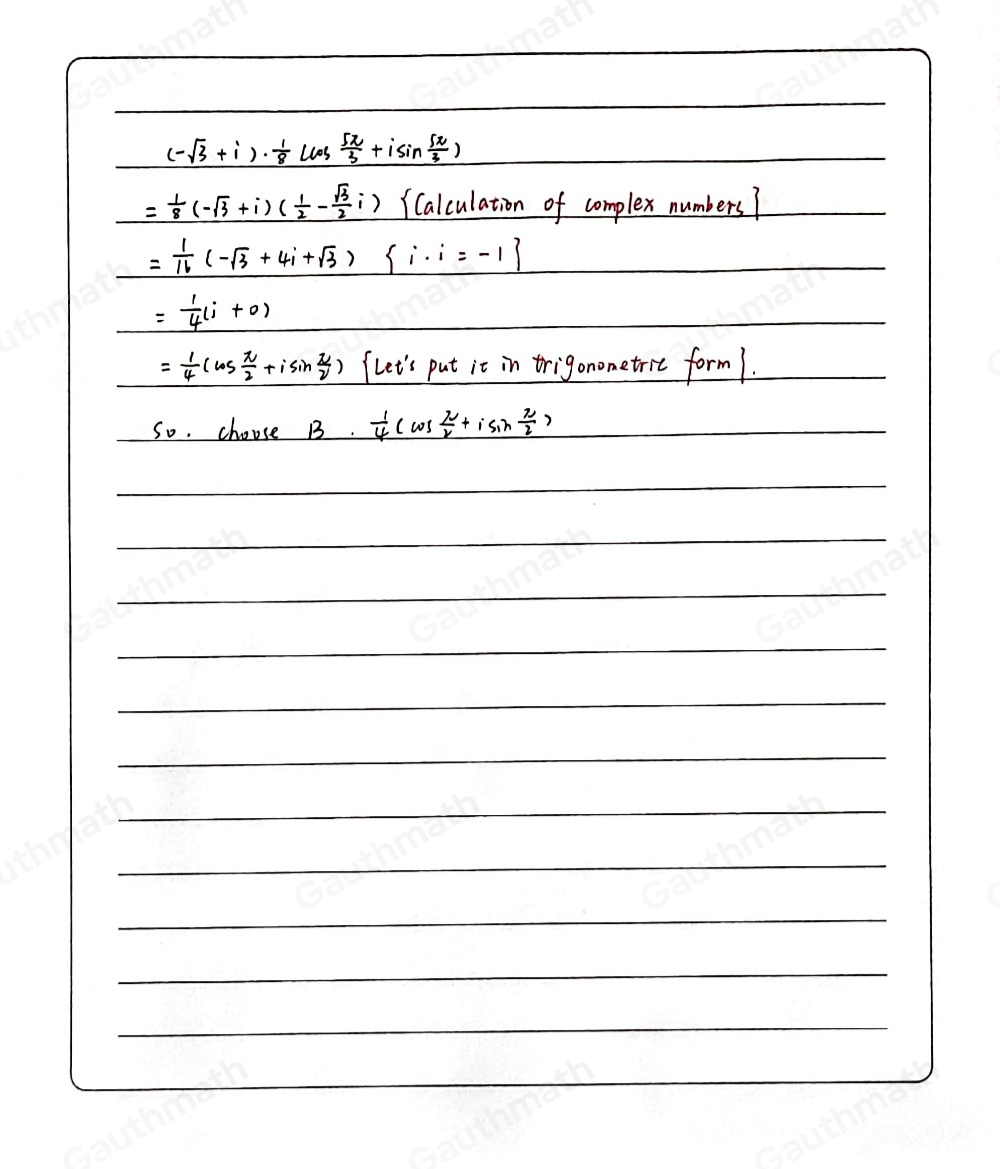 (-√3 + i) · 1/8 (cos 5π/3 + i sin 5π/3)
= 1/8 (-√3 + i) (1/2 - √3/2 i) {Calculation of complex numbers}
= 1/16 (-√3 + 4i + √3) { i · i = -1 }
= 1/4 (i + 0)
= 1/4 (cos π/2 + i sin π/2) {Let's put it in trigonometric form}.
So. choose B. 1/4 (cos π/2 + i sin π/2)
Gauthmath